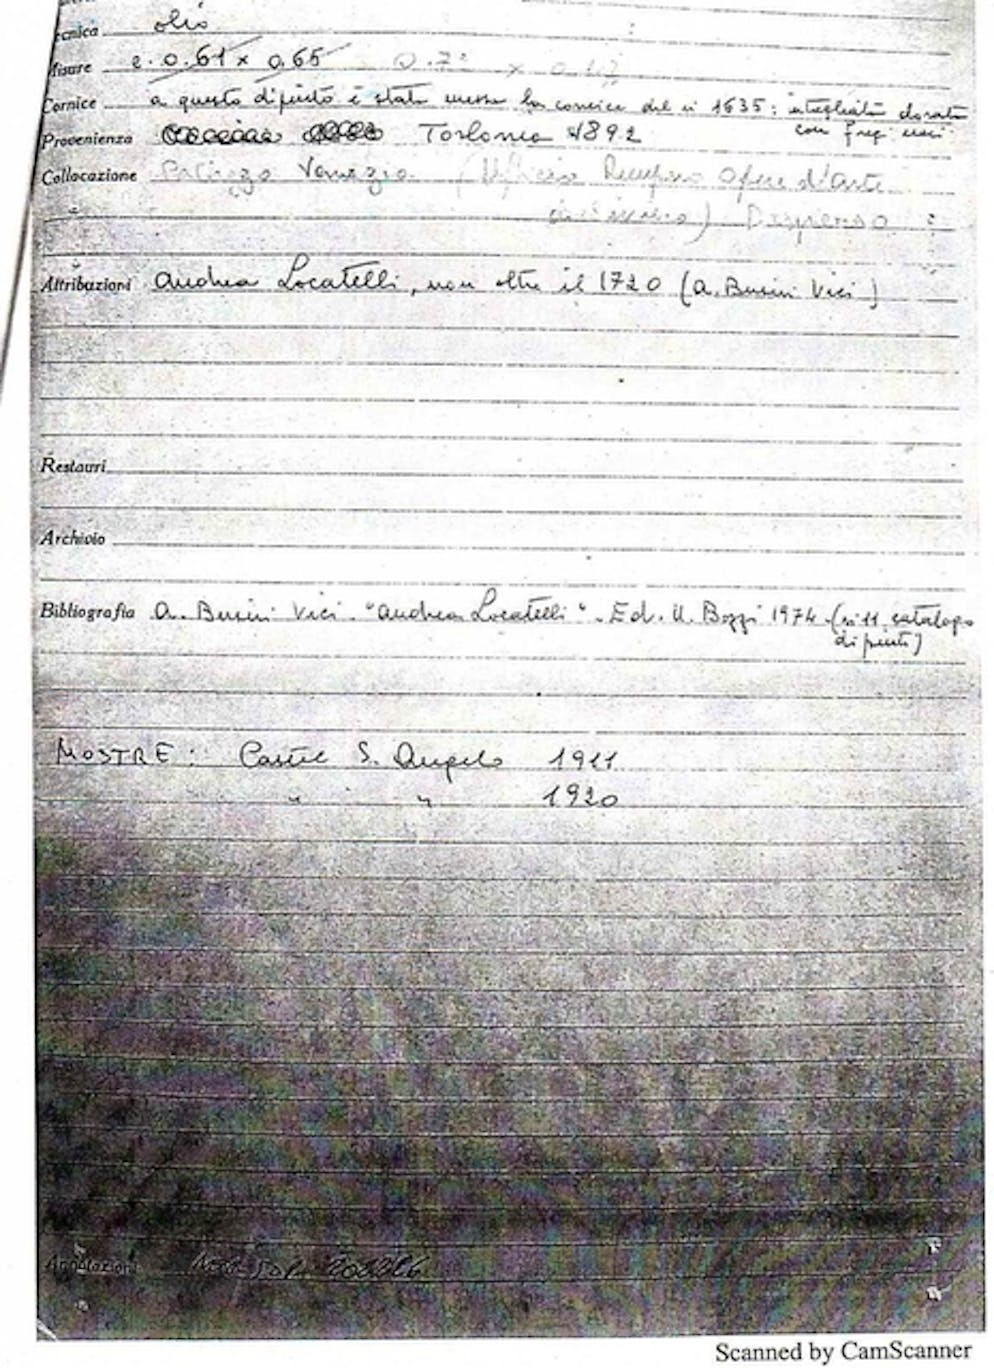 ecnica olio
Misure e. 0.61 x 0,65
Cornice a questo dipinto è stata messa la cornice del n 1635: intagliata dorata
con fregi
Provenienza Torlonia 1892
Collocazione Palazzo Venezia (Ufficio Recupero Opere d'arte
) Disperso ?
Attribuzioni Andrea Locatelli, non oltre il 1720 (A. Busiri Vici)
Restauri
Archivio
Bibliografia A. Busiri Vici. "Andrea Locatelli". Ed. U. Bozzi 1974 (n° 11 catalogo
dipinti)
MOSTRE: Castel S. Angelo 1911
" " 1920
Annotazioni
Scanned by CamScanner